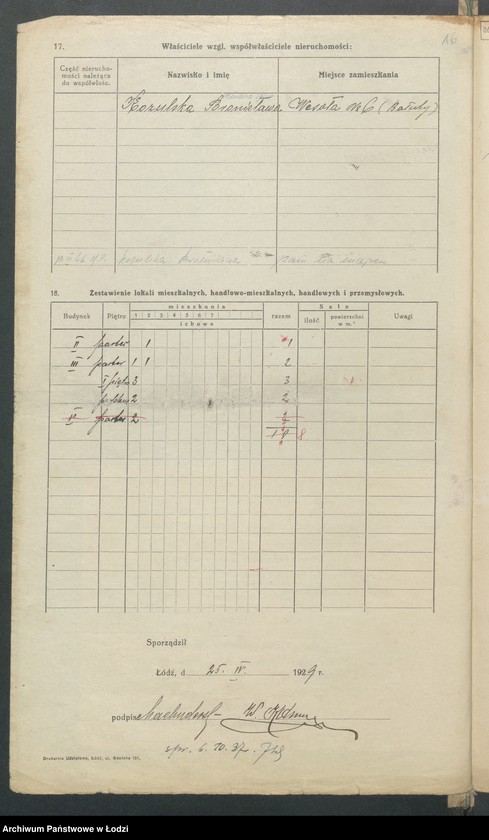 17. Właściciele wzgl. współwłaściciele nieruchomości:
Część nierucho-
mości należąca
do współwłaśc.
Nazwisko i imię
Miejsce zamieszkania
Kozulska Bronisława Wesoła № 6 (Bałuty)
18. Zestawienie lokali mieszkalnych, handlowo-mieszkalnych, handlowych i przemysłowych.
Budynek Piętro mieszkania razem Sale Uwagi
1 2 3 4 5 6 7
izbowe
ilość powierzchni w m.²
II parter 1 1
III parter 1 1 2
I piętro 3 3
2 2
parter 2
8
Sporządził
Łódź, d 25. IV. 1929 r.
podpis
spr. 6. 10. 37.
Drukarnia Udziałowa, Łódź
Archiwum Państwowe w Łodzi